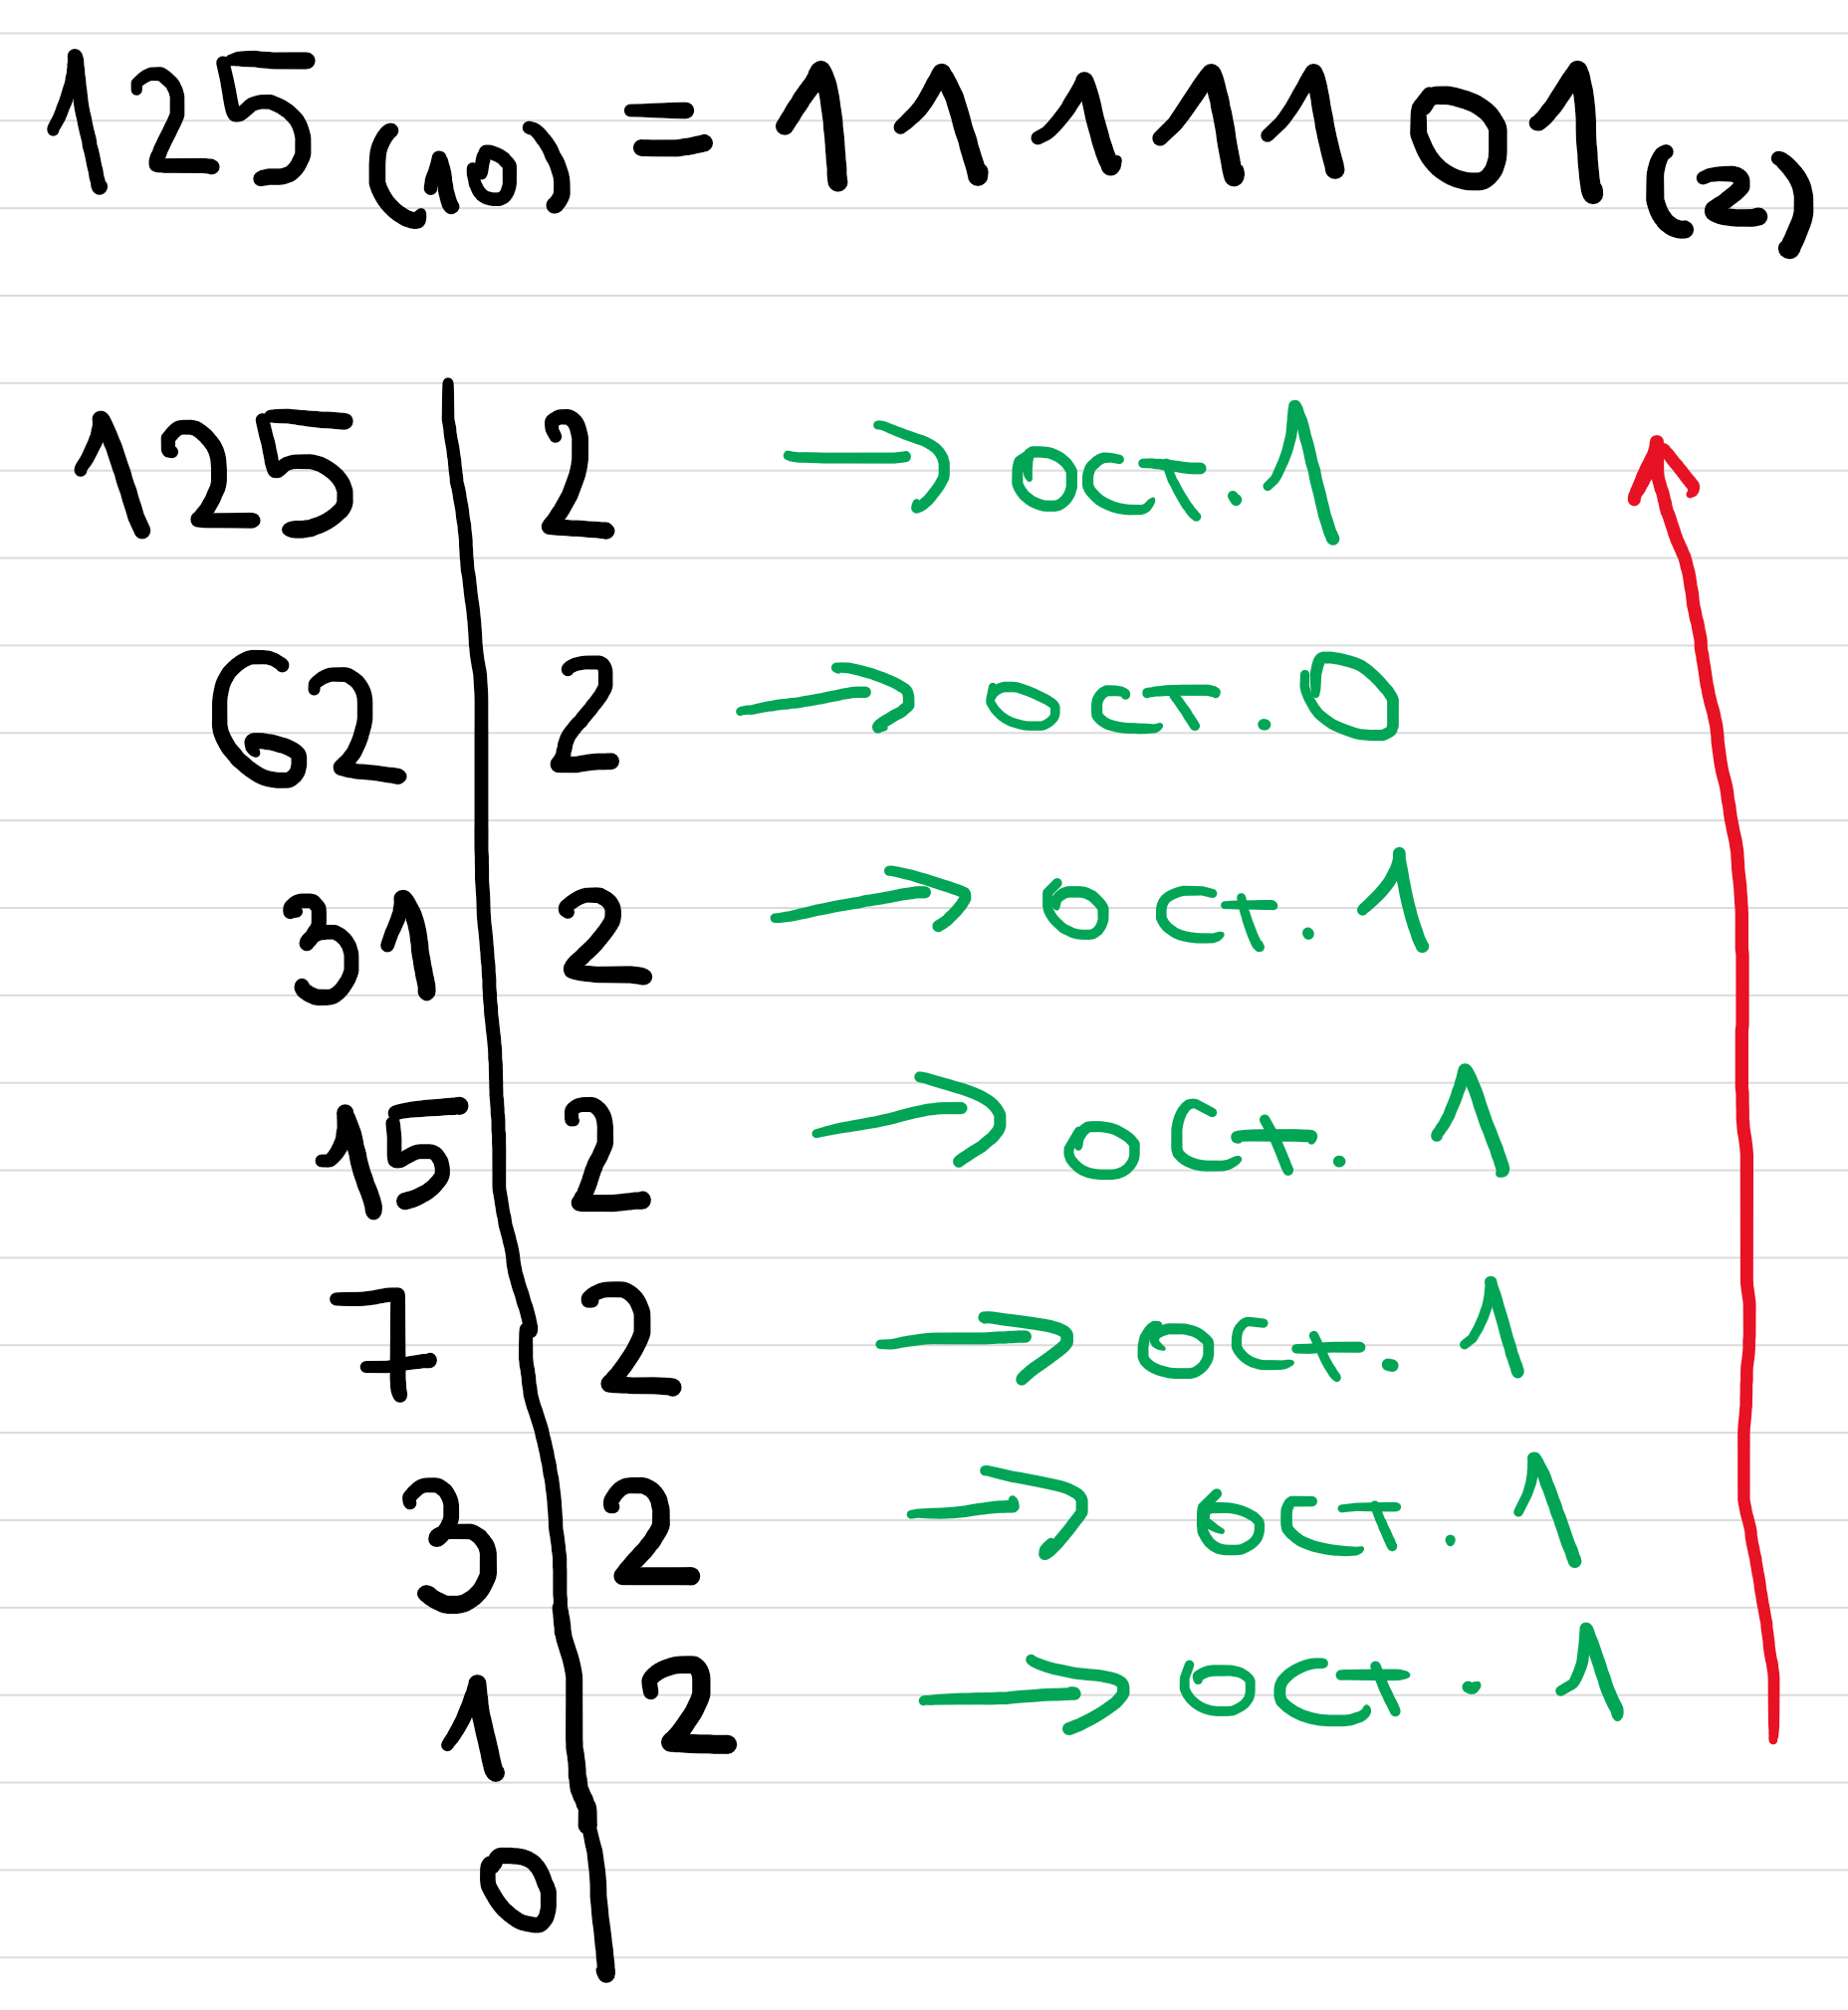 125(10) = 1111101(2)
125 2 → ост. 1
62 2 → ост. 0
31 2 → ост. 1
15 2 → ост. 1
7 2 → ост. 1
3 2 → ост. 1
1 2 → ост. 1
0